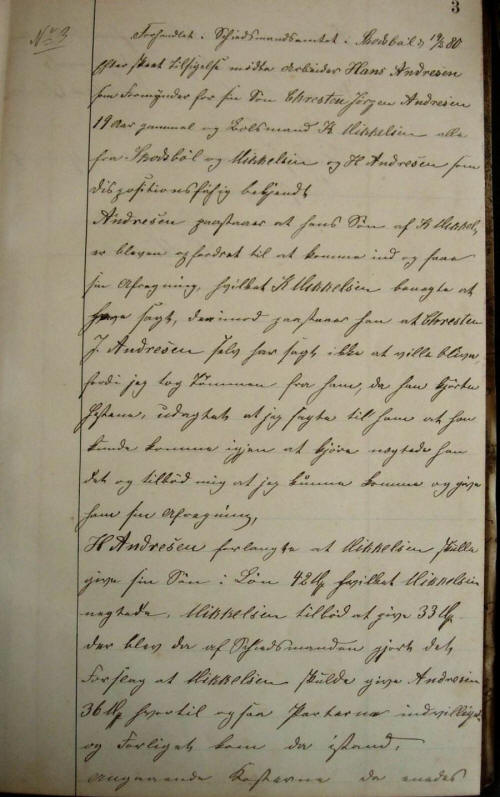 3
No 3
Forhandlet i Schiedsmandsamtet i Skodsböl d 19/3 80
Efter skeet Tilsigelse mødte Arbeider Hans Andresen
som Formÿnder for sin Søn Chresten Jörgen Andresen
19 Aar gammel og Bolsmand K Mikkelsen alle
fra Skodsböl og Mikkelsen og H Andresen som
dispositionsfähig bekjendt
Andresen paastaaer at hans Søn af K Mikkel,
er bleven opfordret til at komme ind og faae
sin Afregning, hvilket K Mikkelsen benegte at
have sagt, derimod paastaaer han at Chresten
J. Andresen selv har sagt ikke at ville blive,
fordi jeg tog Tömmen fra ham, da han kjörte
Hestene, uagtet at jeg sagte til ham at han
kunde komme igjen at kjöre nægtede han
det og tilböd mig at jeg kunne komme og give
ham sin Afregning,
H Andresen forlangte at Mikkelsen skulle
give sin Søn i Løn 42 M hvilket Mikkelsen
negtede, Mikkelsen tilböd at give 33 M
der blev da af Schiedsmanden gjort det
Forslag at Mikkelsen skulde give Andresen
36 M hvortil ogsaa Parterne indvilliget
og Forliget kom da istand,
Angaaende Kosterne da enedes